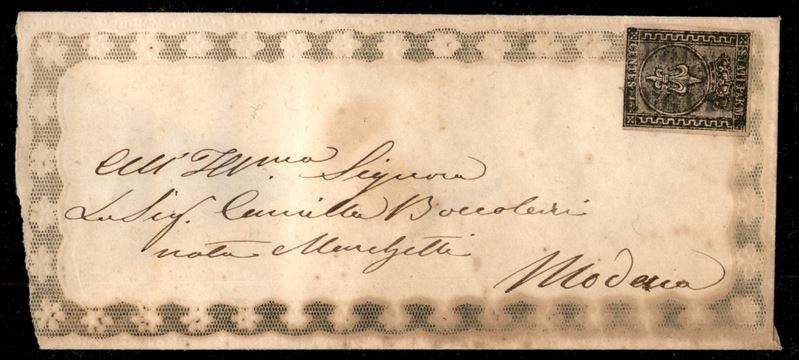 All' Ill.ma Signora
La Sig. Camilla Boccolari
nata Marchetti
Modena
STATI PARM
CENTES